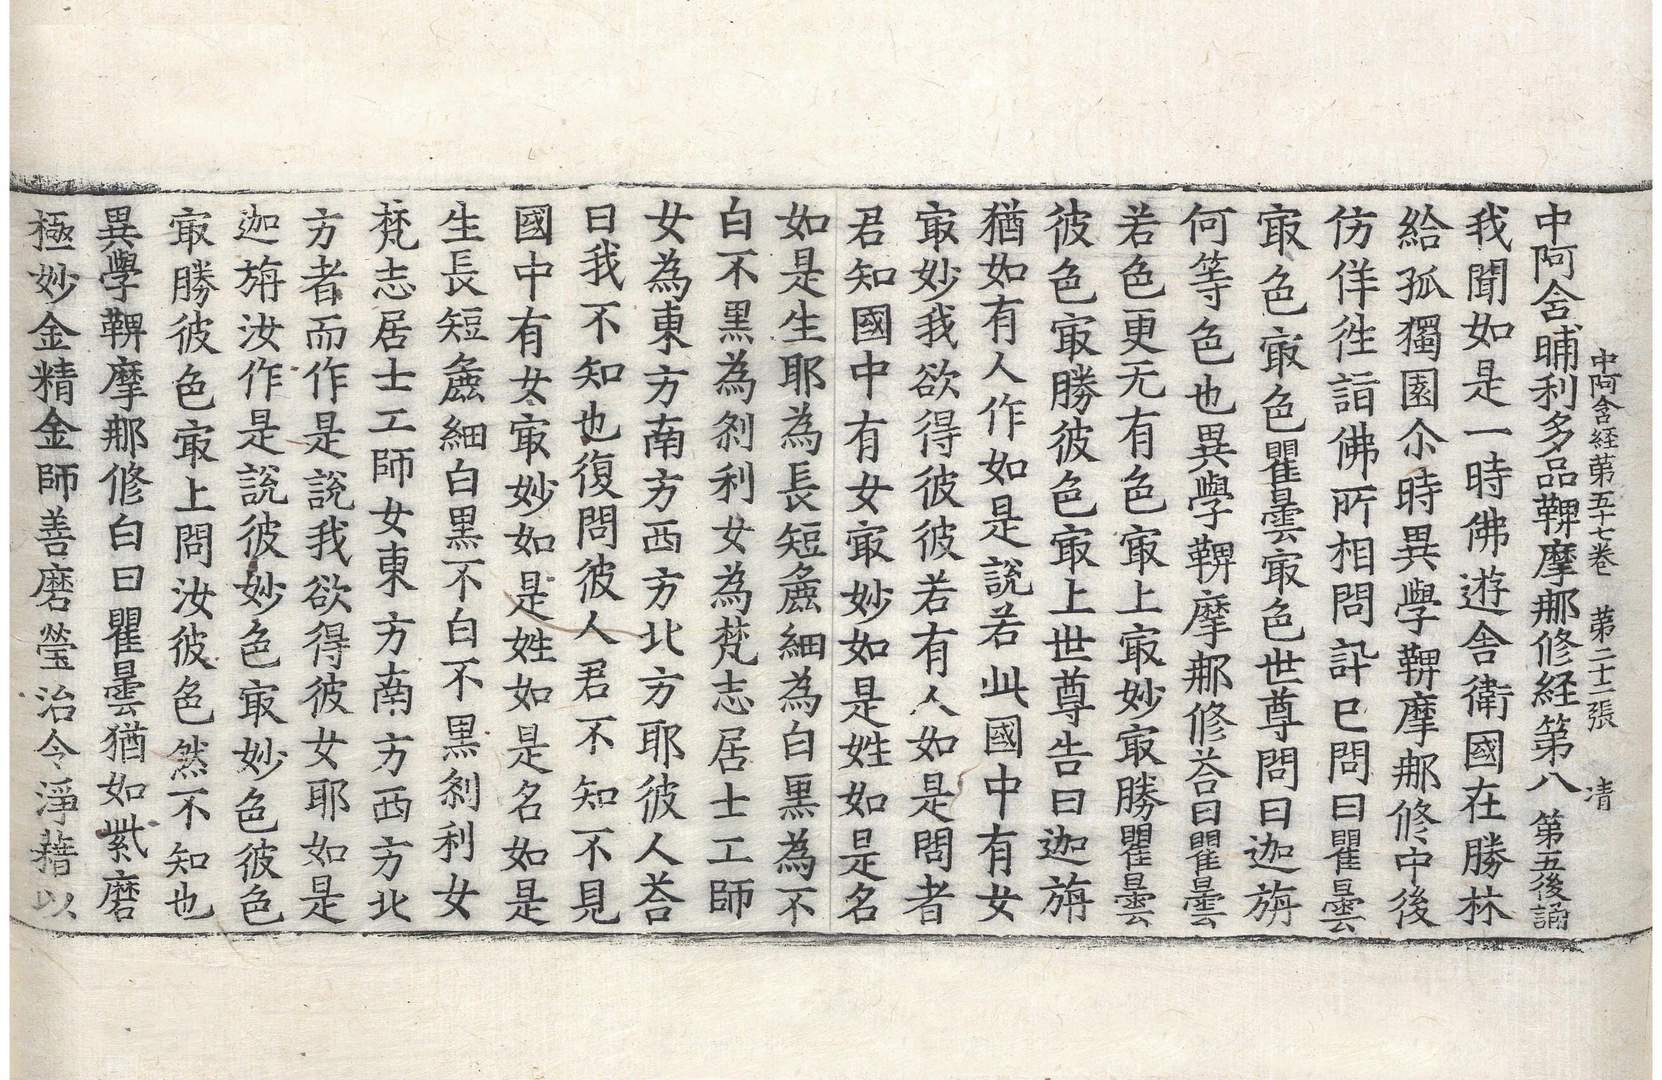 中阿含経苐五十七巻 苐二十二張 凊
中阿含晡利多品鞞摩那修経第八 第五後誦
我聞如是一時佛遊舍衛國在勝林
給孤獨園尒時異學鞞摩那修中後
仿佯徃詣佛所相問訊已問曰瞿曇
㝡色㝡色瞿曇㝡色世尊問曰迦旃
何等色也異學鞞摩那修荅曰瞿曇
若色更无有色㝡上㝡妙㝡勝瞿曇
彼色㝡勝彼色㝡上世尊告曰迦旃
猶如有人作如是說若此國中有女
㝡妙我欲得彼彼若有人如是問者
君知國中有女㝡妙如是姓如是名
如是生耶為長短麁細為白黒為不
白不黒為剎利女為梵志居士工師
女為東方南方西方北方耶彼人荅
曰我不知也復問彼人君不知不見
國中有女㝡妙如是姓如是名如是
生長短麁細白黒不白不黒剎利女
梵志居士工師女東方南方西方北
方者而作是說我欲得彼女耶如是
迦旃汝作是說彼妙色㝡妙色彼色
㝡勝彼色㝡上問汝彼色然不知也
異學鞞摩那修白曰瞿曇猶如紫磨
極妙金精金師善磨瑩治令淨藉以